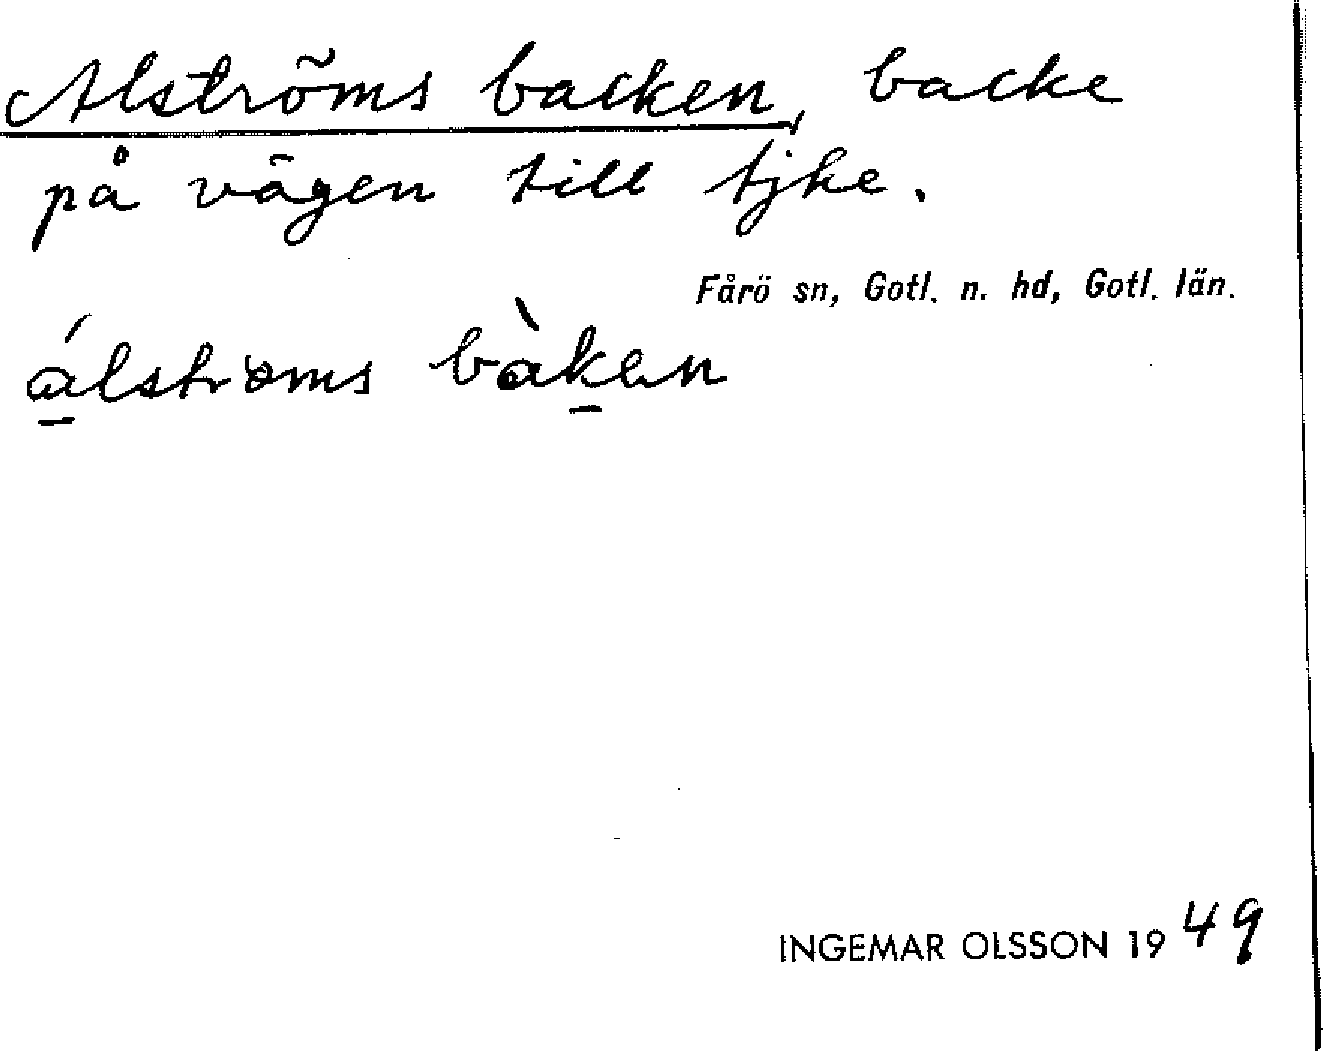 Alströms backen, backe
på vägen till tjke.
Fårö sn, Gotl. n. hd, Gotl. län.
álstrɵms bàken
INGEMAR OLSSON 1949